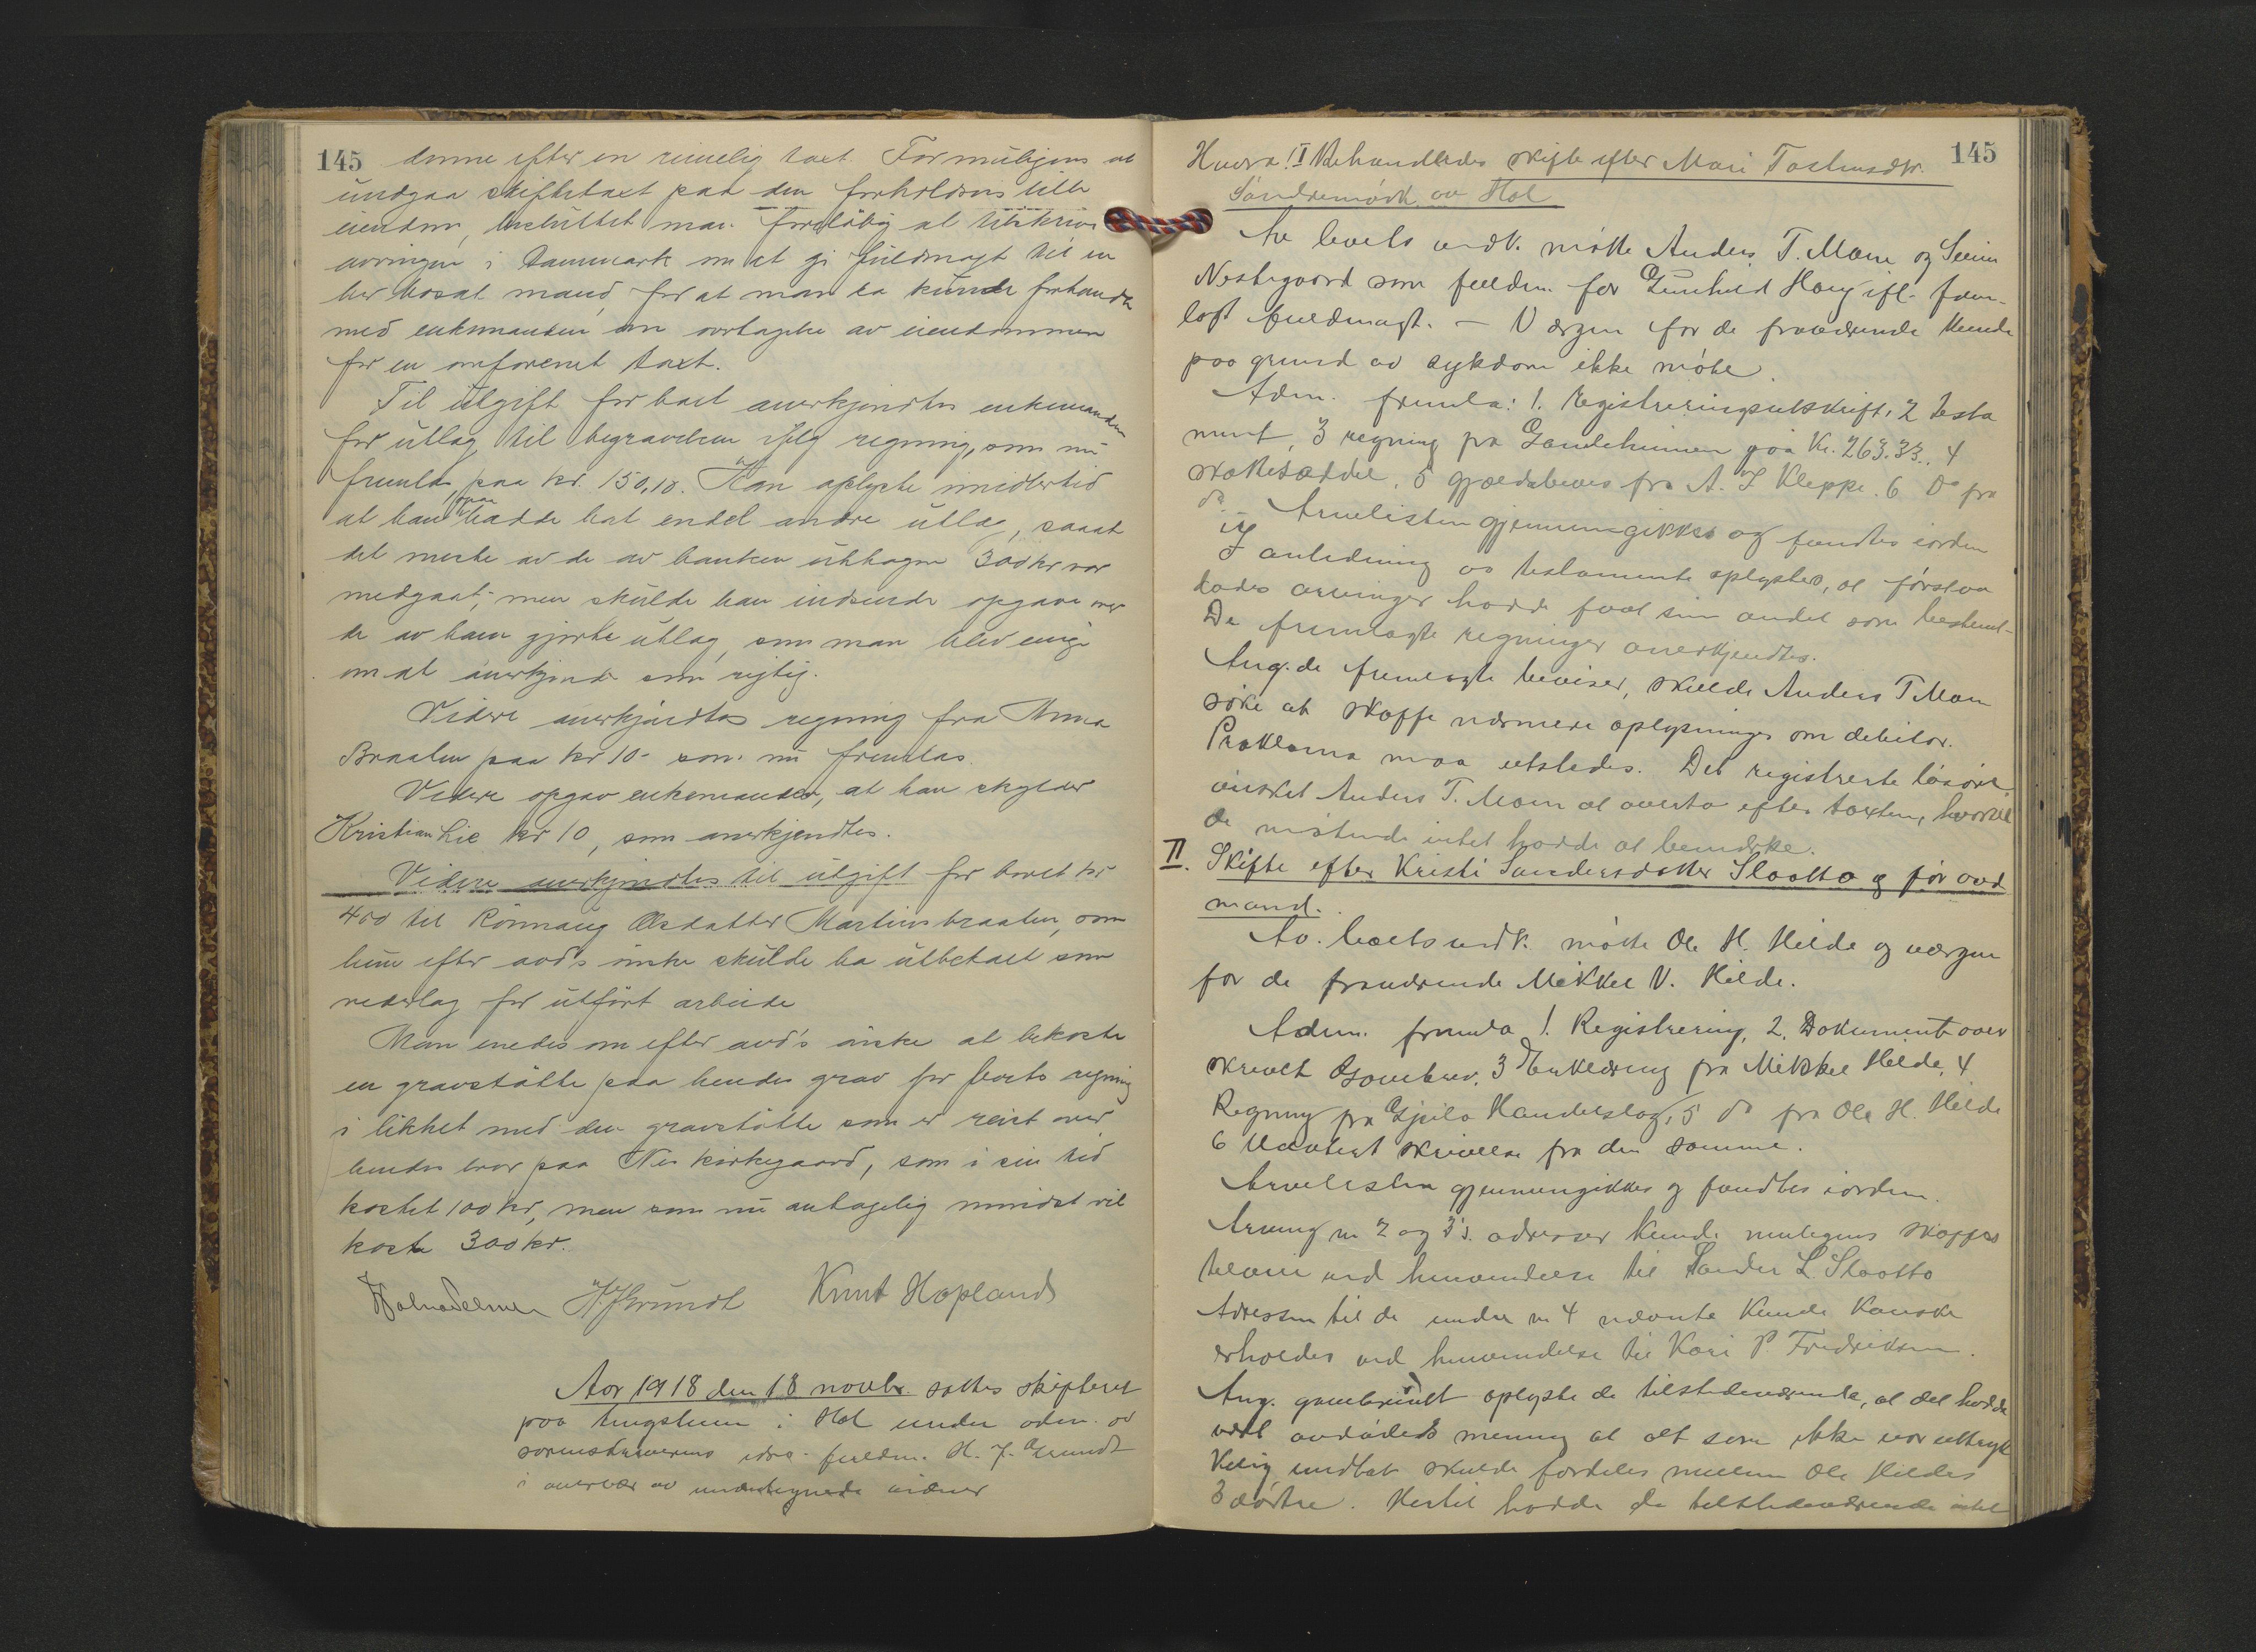 145 denne efter en rimelig taxt. For muligens at
undgaa skiftetaxt paa den forholdsvis lille
eiendom, besluttet man foreløbig at tilskrive
arvingen i Danmark om at gi fuldmagt til en
her bosat mand, for at man da kunde forhandle
med enkemanden om overtagelse av eiendommen
for en omforenet taxt.
Til utgift for boet anerkjendtes enkemanden
for utlæg til begravelsen ifølg regning, som nu
fremla paa kr. 150,10. Han oplyste imidlertid
at han ogsaa hadde hat endel andre utlæg, saaat
det meste av de av banken uttagne 300 kr var
medgaat; men skulde han indsende opgave over
de av ham gjorte utlæg, som man blev enige
om at anerkjende som rigtig.
Videre anerkjendtes regning fra Anna
Braaten paa kr 10- som nu fremlas.
Videre opgav enkemanden, at han skylder
Kristian Lie kr 10, som anerkjendtes.
Videre anerkjendtes til utgift for boet kr
400 til Rønnaug Olsdatter Martinsbraaten, som
hun efter avd's ønske skulde ha utbetalt som
vederlag for utført arbeide
Man enedes om efter avd's ønske at bekoste
en gravstøtte paa hendes grav for boets regning
i likhet med den gravstøtte som er reist over
hendes bror paa Nes kirkegaard, som i sin tid
kostet 100 kr, men som nu antagelig mindst vil
koste 300 kr.
H. J. Grundt Knut Hopland
Aar 1918 den 18 novbr. sattes skifteret
paa tingstuen i Hol under adm. av
sorenskriverens edsv. fuldm. H. J. Grundt
i overvær av undertegnede vidner
145
Hvora! I Behandledes skifte efter Mari Tostensdtr.
Søndremørk av Hol
Av boets vedk. møtte Anders T. Moen og Svein
Nestegaard som fuldm. for Gunhild Haug ifl. frem-
lagt fuldmagt. — Værgen for de fraværende kunde
paa grund av sykdom ikke møte.
Adm. fremla: 1. Registreringsutskrift, 2 Testa
ment, 3 regning fra Gamlehimen paa Kr. 263.33. 4
skattesæddel, 5 gjældsbevis fra A. T Kleppe. 6 Do fra
do Arvelisten gjennemgikkes og fandtes iorden
I anledning av testamente oplystes, at førstav
dødes arvinger hadde faat sin andel som bestemt-
De fremlagte regninger anerkjendtes.
Ang. de fremlagte beviser, skulde Anders T Moen
søke at skaffe nærmere oplysninger om debitor.
Proklama maa utstedes. Det registrerte løsøre
ønsket Anders T. Moen at overta efter taxten, hvortil
de møtende intet hadde at bemerke.
II. Skifte efter Kristi Sandersdatter Slaatto og før avd
mand.
Av boets vedk. møtte Ole H. Hilde og værgen
for de fraværende Mikkel V. Hilde.
Adm. fremla 1. Registrering, 2. Dokument over
skrevet Gavebrev, 3 Erklæring fra Mikkel Hilde, 4
Regning fra Gjeilo Handelslag, 5 do fra Ole H. Hilde
6 Udatert skrivelse fra den samme.
Arvelisten gjennemgikkes og fandtes iorden.
Arving nr 2 og 3's adresser kunde muligens skaffes
tilveie ved henvendelse til Sander L. Slaatto
Adressen til de under nr 4 nævnte kunde kanske
erholdes ved henvendelse til Kari P. Fredriksen.
Ang. gavebrevet oplyste de tilstedeværende, at det hadde
vært avdødes mening at alt som ikke var uttryk
kelig undtat skulde fordeles mellem Ole Hildes
3 døtre. Hertil hadde de tilstedeværende intet